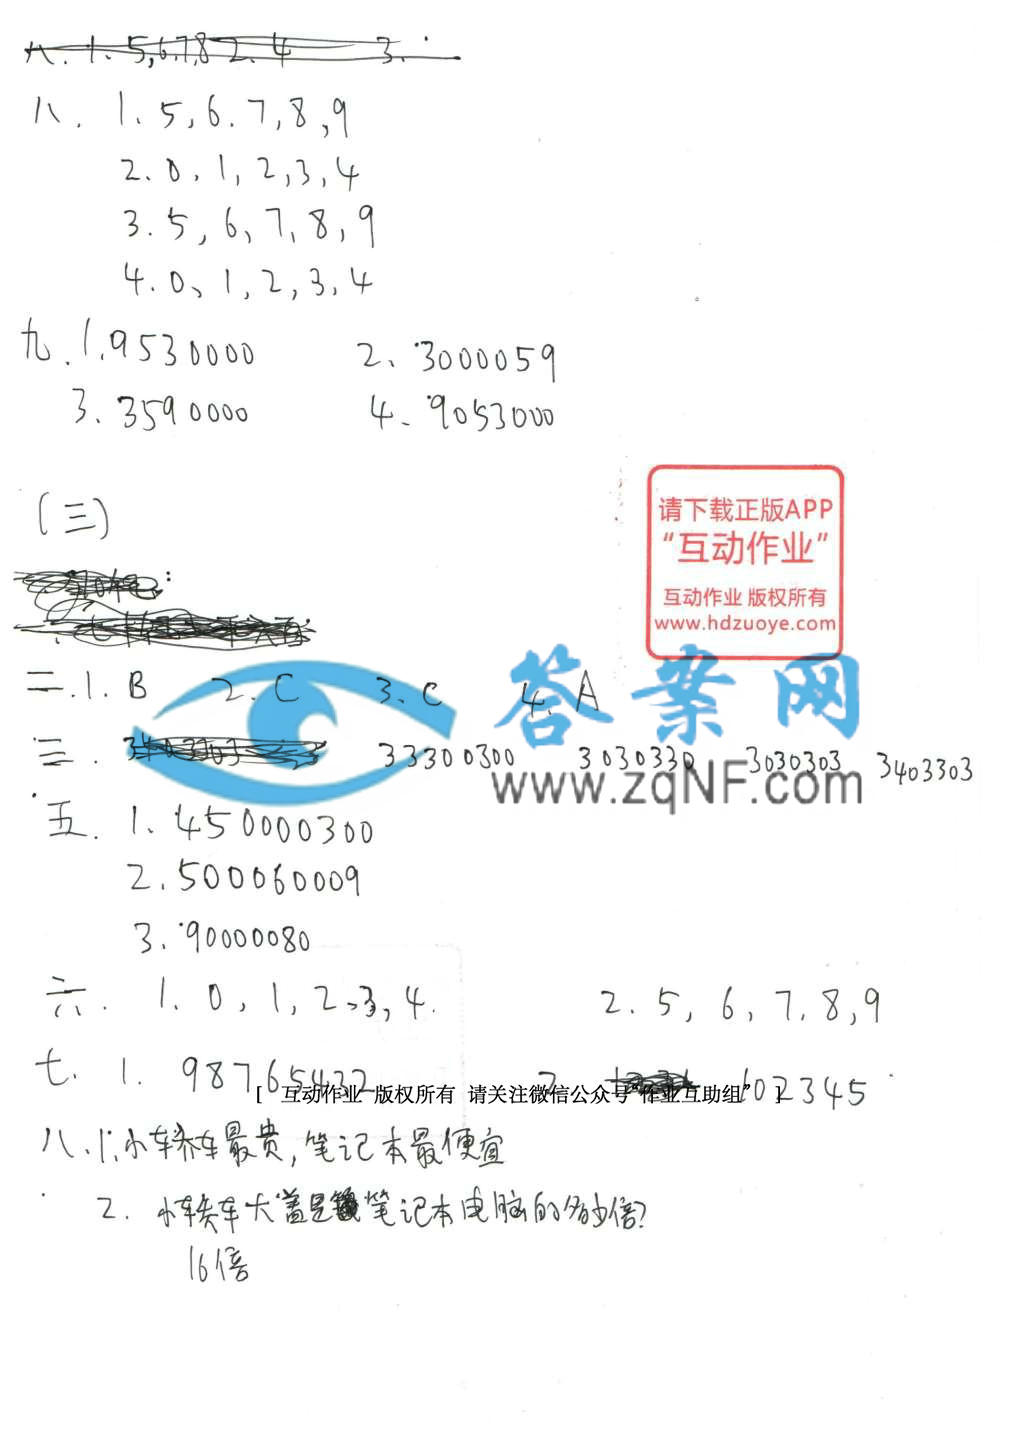 八. 1. 5,6,7,8 2. 4 3.
八. 1. 5, 6. 7, 8, 9
2. 0, 1, 2, 3, 4
3. 5, 6, 7, 8, 9
4. 0, 1, 2, 3, 4
九. 1. 9530000 2. 3000059
3. 3590000 4. 9053000
(三)
请下载正版APP
“互动作业”
互动作业 版权所有
www.hdzuoye.com
答案网
www.zqNF.com
二. 1. B 2. C 3. C 4. A
三. 33300300 3030330 3030303 3403303
五. 1. 450000300
2. 500060009
3. 90000080
六. 1. 0, 1, 2, 3, 4. 2. 5, 6, 7, 8, 9
七. 1. 98765432 2. 102345
[ 互动作业 版权所有 请关注微信公众号“作业互助组” ]
八. 1. 小轿车最贵, 笔记本最便宜
2. 小轿车大盖是笔记本电脑的多少倍?
16倍